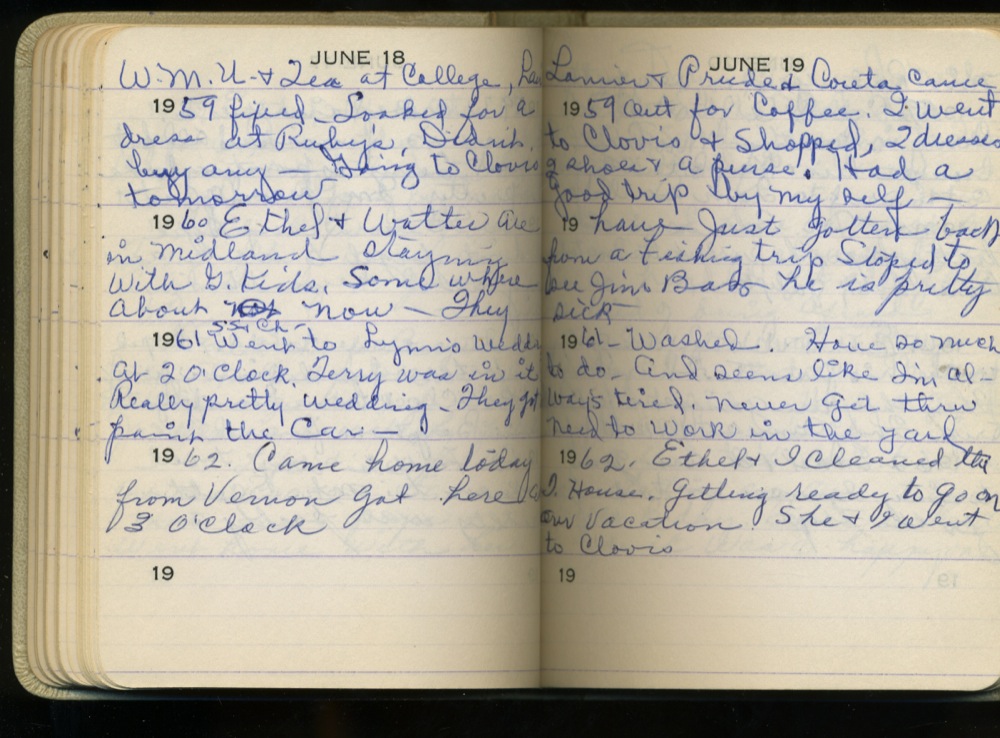 JUNE 18
W.M.U. & Tea at College, ha
1959 fixed. Looked for a
dress at Ruby's, Didn't
buy any — Going to Clovis
tomorrow
1960 Ethel & Walter are
in Midland staying
With G. Kids. Some where
About now — They
SS & Ch -
1961 Went to Lynn's Wedd
at 2 O'Clock. Terry was in it
Really pretty wedding - They got
paint the Car —
1962. Came home today
from Vernon got here
3 O'Clock
19
JUNE 19
& Coeta came
1959 out for Coffee. I went
to Clovis & Shopped, 2 dresses
2 shoes & A purse. Had a
good trip by my self —
19 have Just gotten back
from a Fishing trip Stoped to
see Jim he is pretty
sick
1961- Washed. Have so much
to do. And seems like I'm al-
ways tired. never Get thru
need to work in the yard
1962. Ethel & I Cleaned the
House. Getting ready to go on
our Vacation She & I went
to Clovis
19